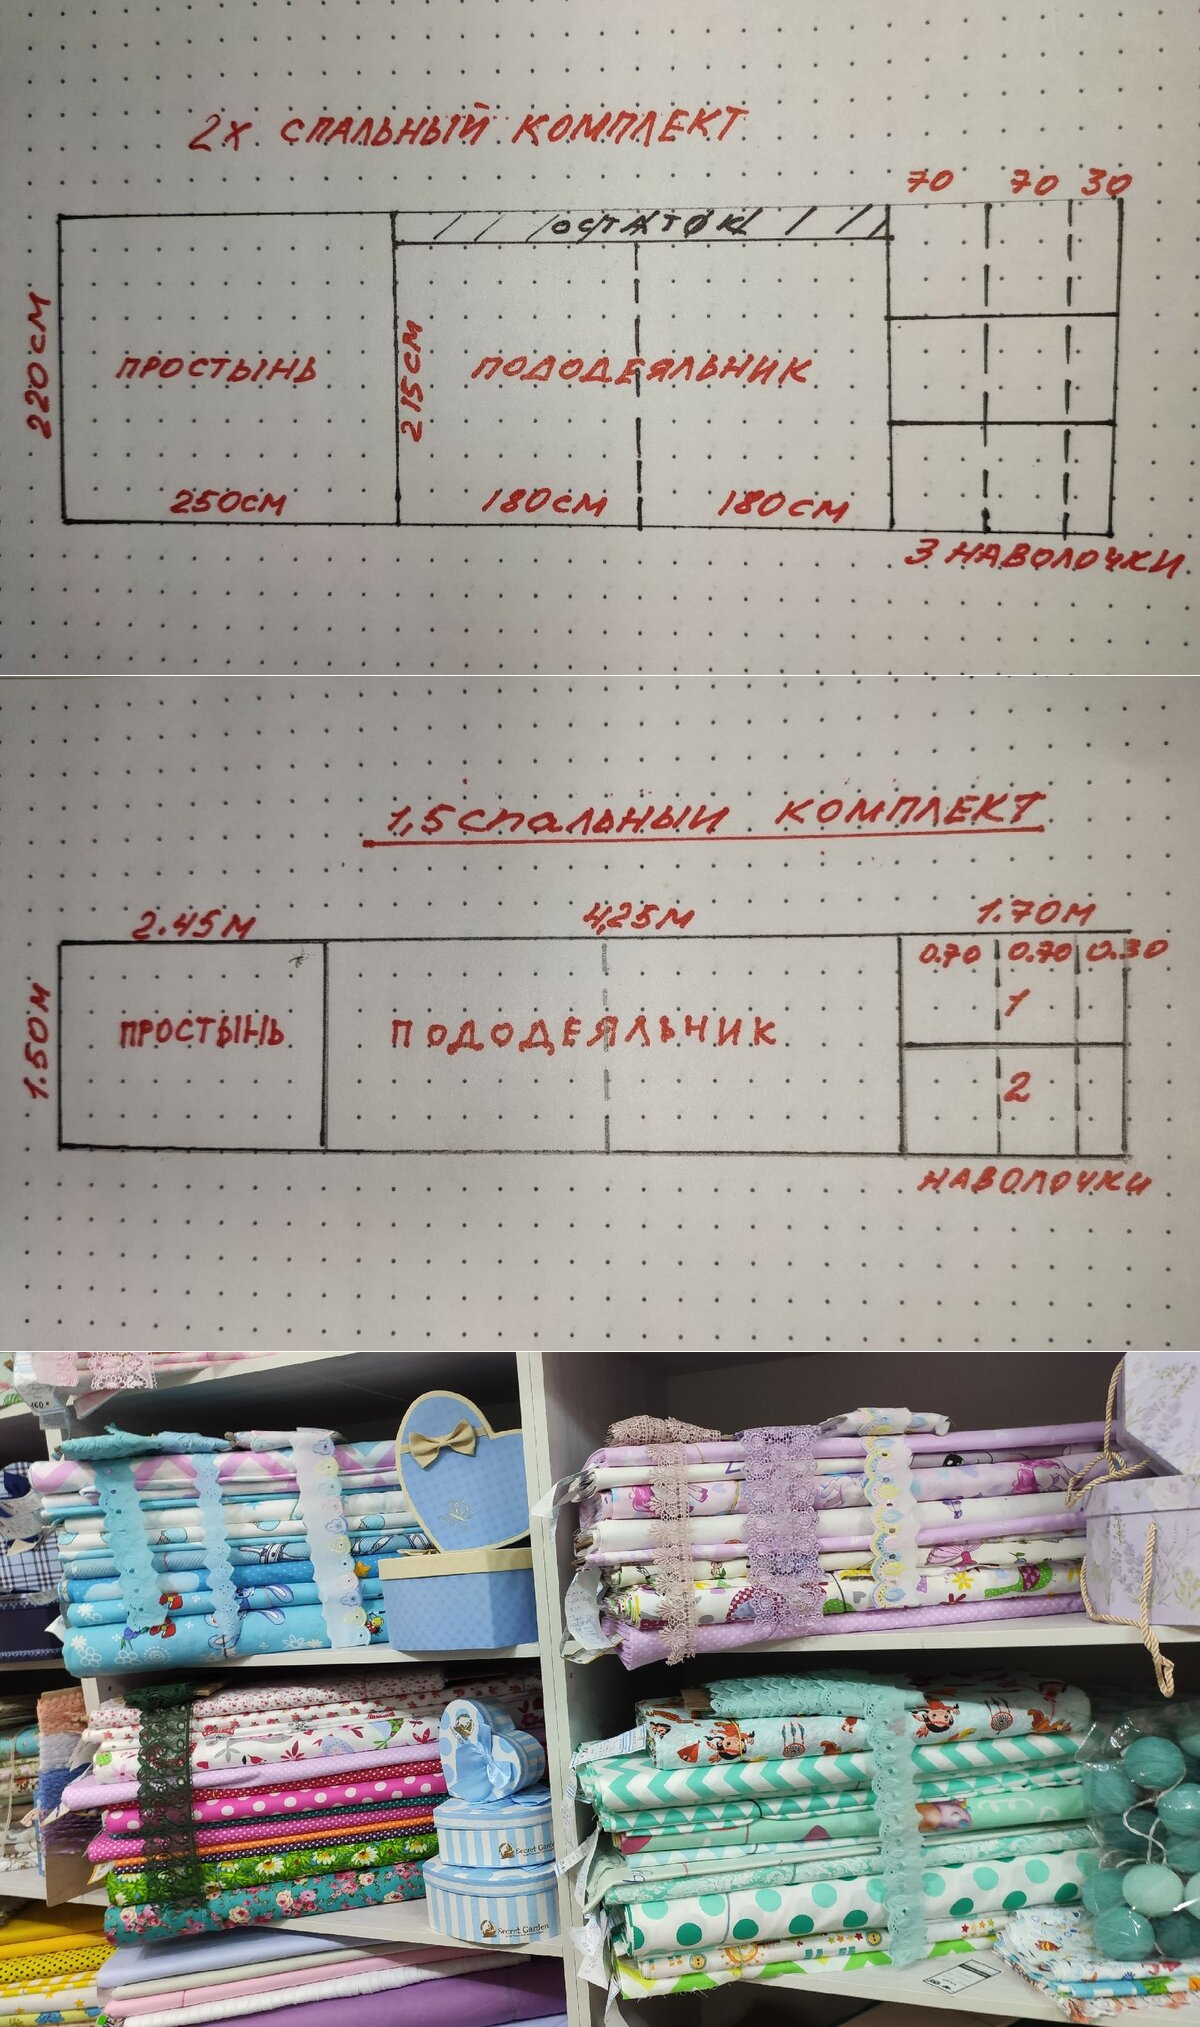 2х спальный комплект
70 70 30
остаток
220см
простынь
215см
пододеяльник
250см
180см
180см
3 наволочки
1,5 спальный комплект
2.45м
4,25м
1.70м
0.70 0.70 0.30
1.50м
простынь
пододеяльник
1
2
наволочки
Secret Garden
Secret Garden